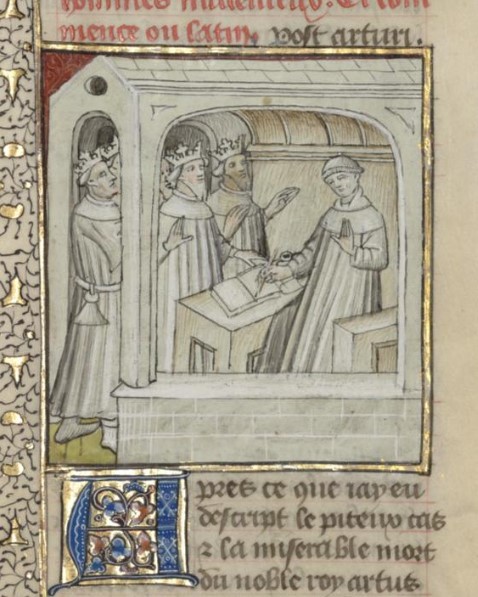 hommes Et com
mence ou latin, post arturi.
Apres ce que iay eu
descript le piteux cas
⁊ la miserable mort
du noble roy artus